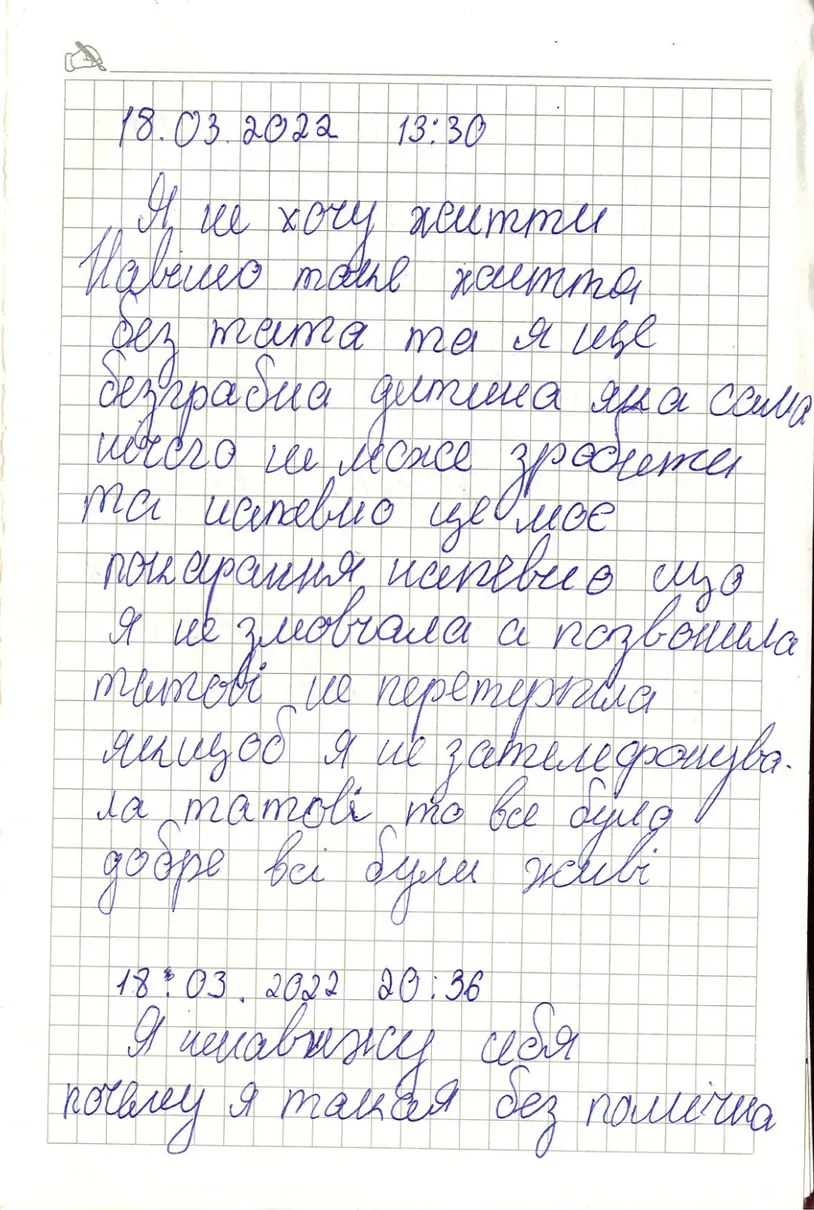 18.03.2022 13:30
Я не хочу житти
Навіщо таке життя
без тата та я ще
безграбна дитина яка сама
нічого не може зробити
та напевно це моє
покарання напевно що
я не змовчала а позвонила
татові не перетерпіла
якщоб я не зателефонува-
ла татові то все було
добре всі були живі
18.03.2022 20:36
Я ненавижу себя
почему я такая без помічна